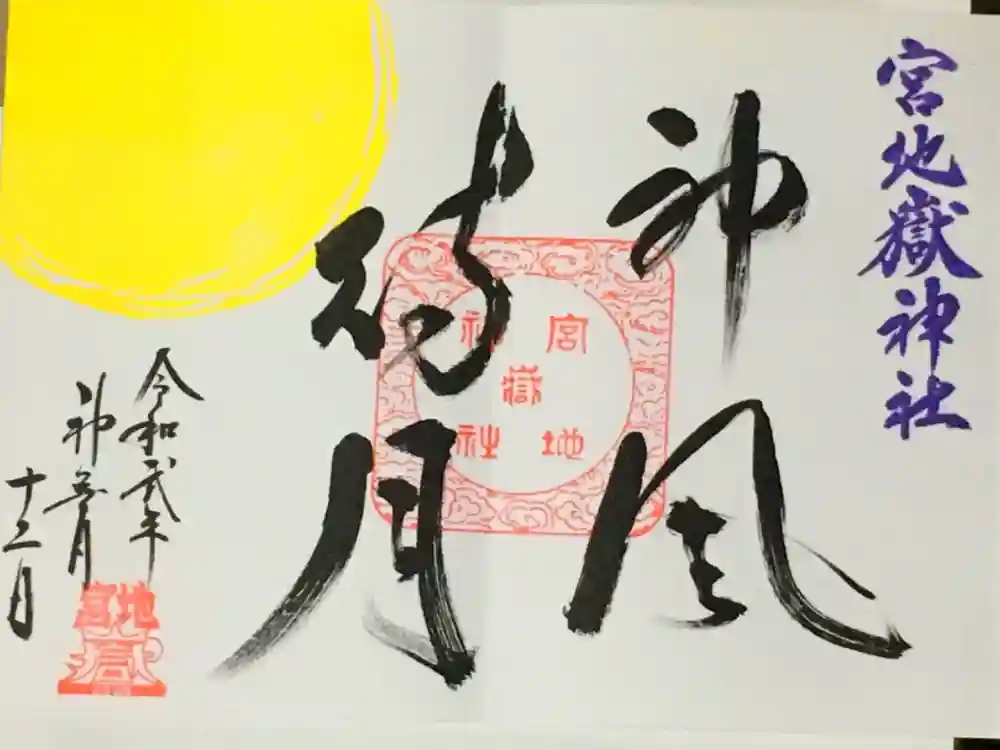 宮地嶽神社
神風
待月
宮地嶽神社
令和弐年
神無月
十二日